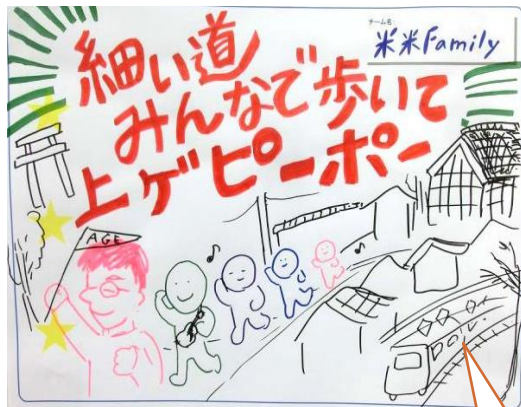 チーム名:
米米Family
細い道
みんなで歩いて
上ゲピーポー
AGE